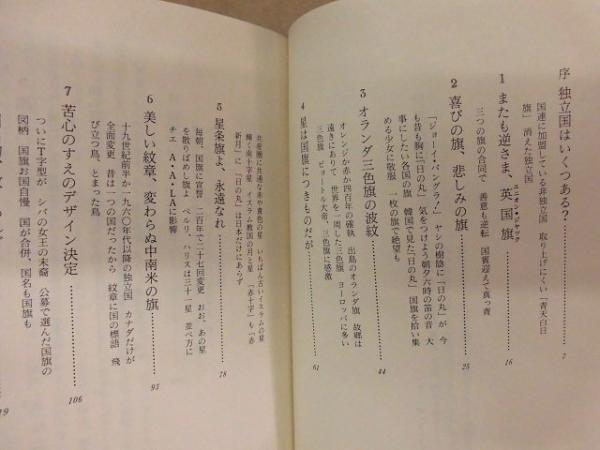 序 独立国はいくつある?
国連に加盟している非独立国 取り上げにくい「青天白日
旗」 消えた独立国
7
1 またも逆さま、英国旗
ユニオンジャック
三つの旗の合同で 善意も逆転 国賓迎えて真っ青
16
2 喜びの旗、悲しみの旗
「ジョーイ・バングラ!」 ヤシの樹陰に「日の丸」が 今
も昔も胸に「日の丸」 気をつけよう朝夕六時の笛の音 大
事にしたい各国の旗 韓国で見た「日の丸」 国旗を拾い集
める少女に敬服 一枚の旗で絶望も
25
3 オランダ三色旗の波紋
オレンジか赤か四百年の確執 出島のオランダ旗 故郷は
遠きにありて 世界を一周した三色旗 ヨーロッパに多い
三色旗 ピョートル大帝、三色旗に感激
44
4 星は国旗につきものだが
61
共産圏に共通な赤や黄色の星 いちばん古いイスラムの星
輝く南十字星 イスラム教国の月と星 「赤十字」も「赤
新月」に 「日の丸」は日本だけにあらず
5 星条旗よ、永遠なれ
毎朝、国旗に宣誓 二百年で二十七回変更 おお、あの星
を散りばめし旗よ ペルリ、ハリスは三十一星 並べ方に
チエ A・A・LAに影響
78
6 美しい紋章、変わらぬ中南米の旗
十九世紀前半か一九六〇年代以降の独立国 カナダだけが
全面変更 昔は一つの国だったから 紋章に国の標語 飛
び立つ鳥、とまった鳥
95
7 苦心のすえのデザイン決定
ついにT字型が シバの女王の末裔 公募で選んだ国旗の
図柄 国旗お国自慢 国が合併、国名も国旗も
106